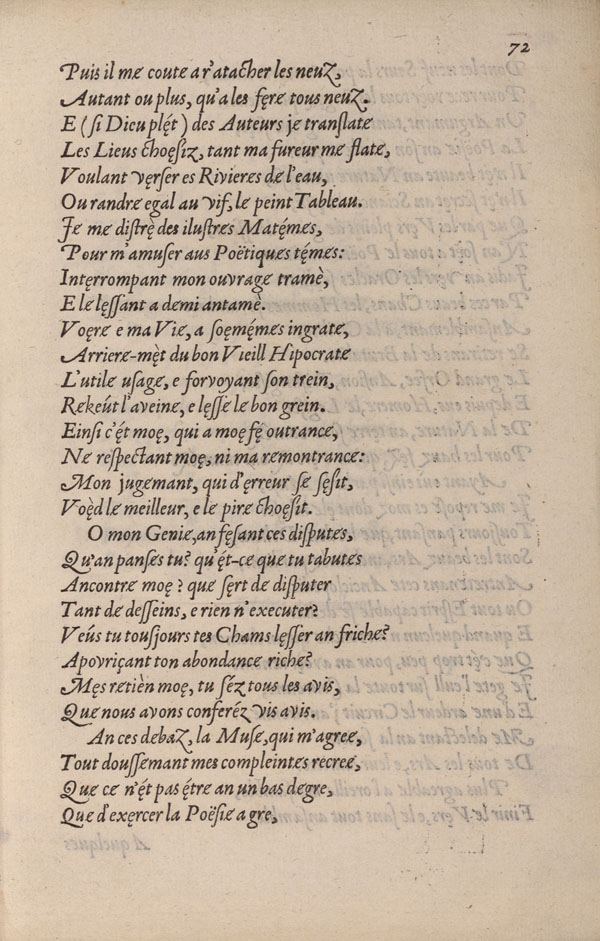 72
Puis il me coute a r'atacher les neuz,
Autant ou plus, qu'a les fęre tous neuz.
E (si Dieu plęt) des Auteurs je translate
Les Lieus choęsiz, tant ma fureur me flate,
Voulant vęrser es Rivieres de l'eau,
Ou randre egal au vif, le peint Tableau.
Je me distrę̀ des ilustres Matęmes,
Pour m'amuser aus Poëtiques tęmes:
Intęrrompant mon ouvrage tramè,
E le lęssant a demi antamè.
Voęre e ma Vie, a soęmęmes ingrate,
Arriere-męt du bon Vieill Hipocrate
L'utile usage, e forvoyant son trein,
Rekeút l'aveine, e lęsse le bon grein.
Einsi c'ę́t moę, qui a moę fę́ outrance,
Ne respectant moę, ni ma remontrance:
Mon jugemant, qui d'ęrreur se sęsit,
Voę̀d le meilleur, e le pire choęsit.
O mon Genie, an fęsant ces disputes,
Qu'an panses tu? qu'ę́t-ce que tu tabutes
Ancontre moę? que sęrt de disputer
Tant de desseins, e rien n'executer?
Veús tu tousjours tes Chams lęsser an friche?
Apovriçant ton abondance riche?
Męs retièn moę, tu séz tous les avis,
Que nous avons conferéz vis avis.
An ces debaz, la Muse, qui m'agree,
Tout doussemant mes compleintes recree,
Que ce n'ę́t pas ę́tre an un bas degre,
Que d'exęrcer la Poësie a gre,